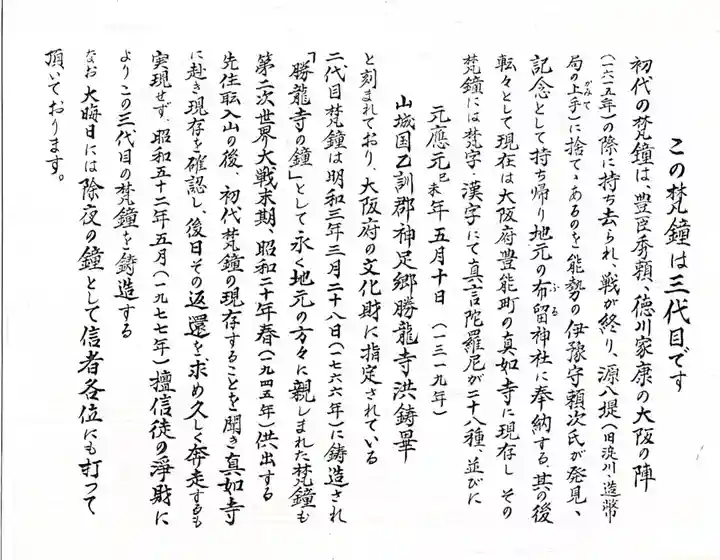 この梵鐘は三代目です
初代の梵鐘は、豊臣秀頼、徳川家康の大阪の陣
（一六一五年）の際に持ち去られ、戦が終り、源八堤（旧淀川・造幣
局の上手）に捨てゝあるのを能勢の伊豫守頼次氏が発見、
記念として持ち帰り地元の布留神社に奉納する、其の後
転々として現在は大阪府豊能町の真如寺に現存し その
梵鐘には梵字・漢字にて真言陀羅尼が二十八種、並びに
元應元己未年 五月十日 （一三一九年）
山城国乙訓郡神足郷勝龍寺洪鋳畢
と刻まれており、大阪府の文化財に指定されている
二代目梵鐘は明和三年三月二十八日（一七六六年）に鋳造され
「勝龍寺の鐘」として永く地元の方々に親しまれた梵鐘も
第二次世界大戦末期、昭和二十年春（一九四五年）供出する
先住転入山の後、初代梵鐘の現存することを聞き真如寺
に赴き現存を確認し、後日その返還を求め久しく奔走するも
実現せず、昭和五十二年五月（一九七七年）檀信徒の浄財に
よりこの三代目の梵鐘を鋳造する
なお 大晦日には除夜の鐘として信者各位にも打って
頂いております。